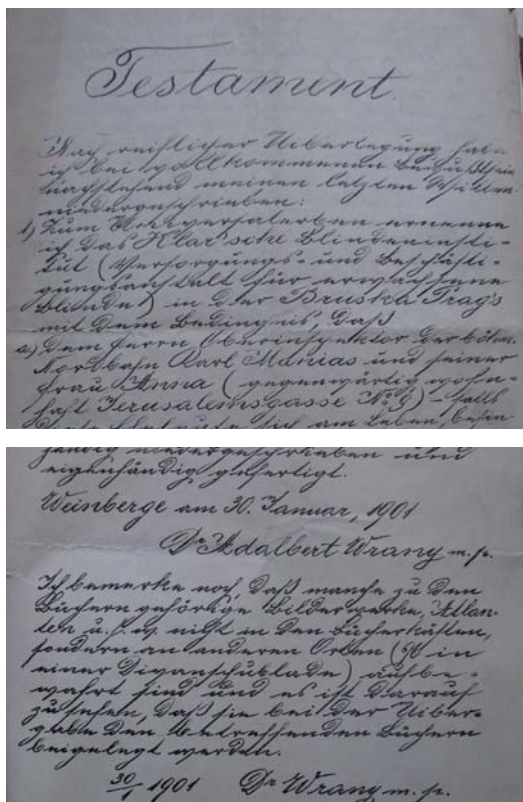 Testament.
Nach reiflicher Ueberlegung habe
ich bei vollkommenem Bewußtsein
nachstehend meinen letzten Willen
niedergeschrieben:
1) Zum Universalerben ernenne
ich das Klar'sche Blindeninsti-
tut (Versorgungs- und Beschäfti-
gungsanstalt für erwachsene
Blinde) in der Bruska Prags
mit dem Bedingnis, daß
a) dem Herrn Oberinspektor der böhm.
Nordbahn Karl Manias und seiner
Frau Anna (gegenwärtig wohn-
haft Jerusalemsgasse No 9) - falls
sich am Leben, befin
händig niedergeschrieben und
eigenhändig gefertigt.
Weinberge am 30. Januar, 1901
Dr Adalbert Wrany m. p.
Ich bemerke noch, daß manche zu den
Büchern gehörige Bilderwerke, Atlan-
ten u. s. w. nicht in den Bücherkästen,
sondern an anderen Orten (z. B. in
einer Divanschublade) aufbe-
wahrt sind und es ist darauf
zu sehen, daß sie bei der Ueber-
gabe den betreffenden Büchern
beigelegt werden.
30/1 1901 Dr Wrany m. p.